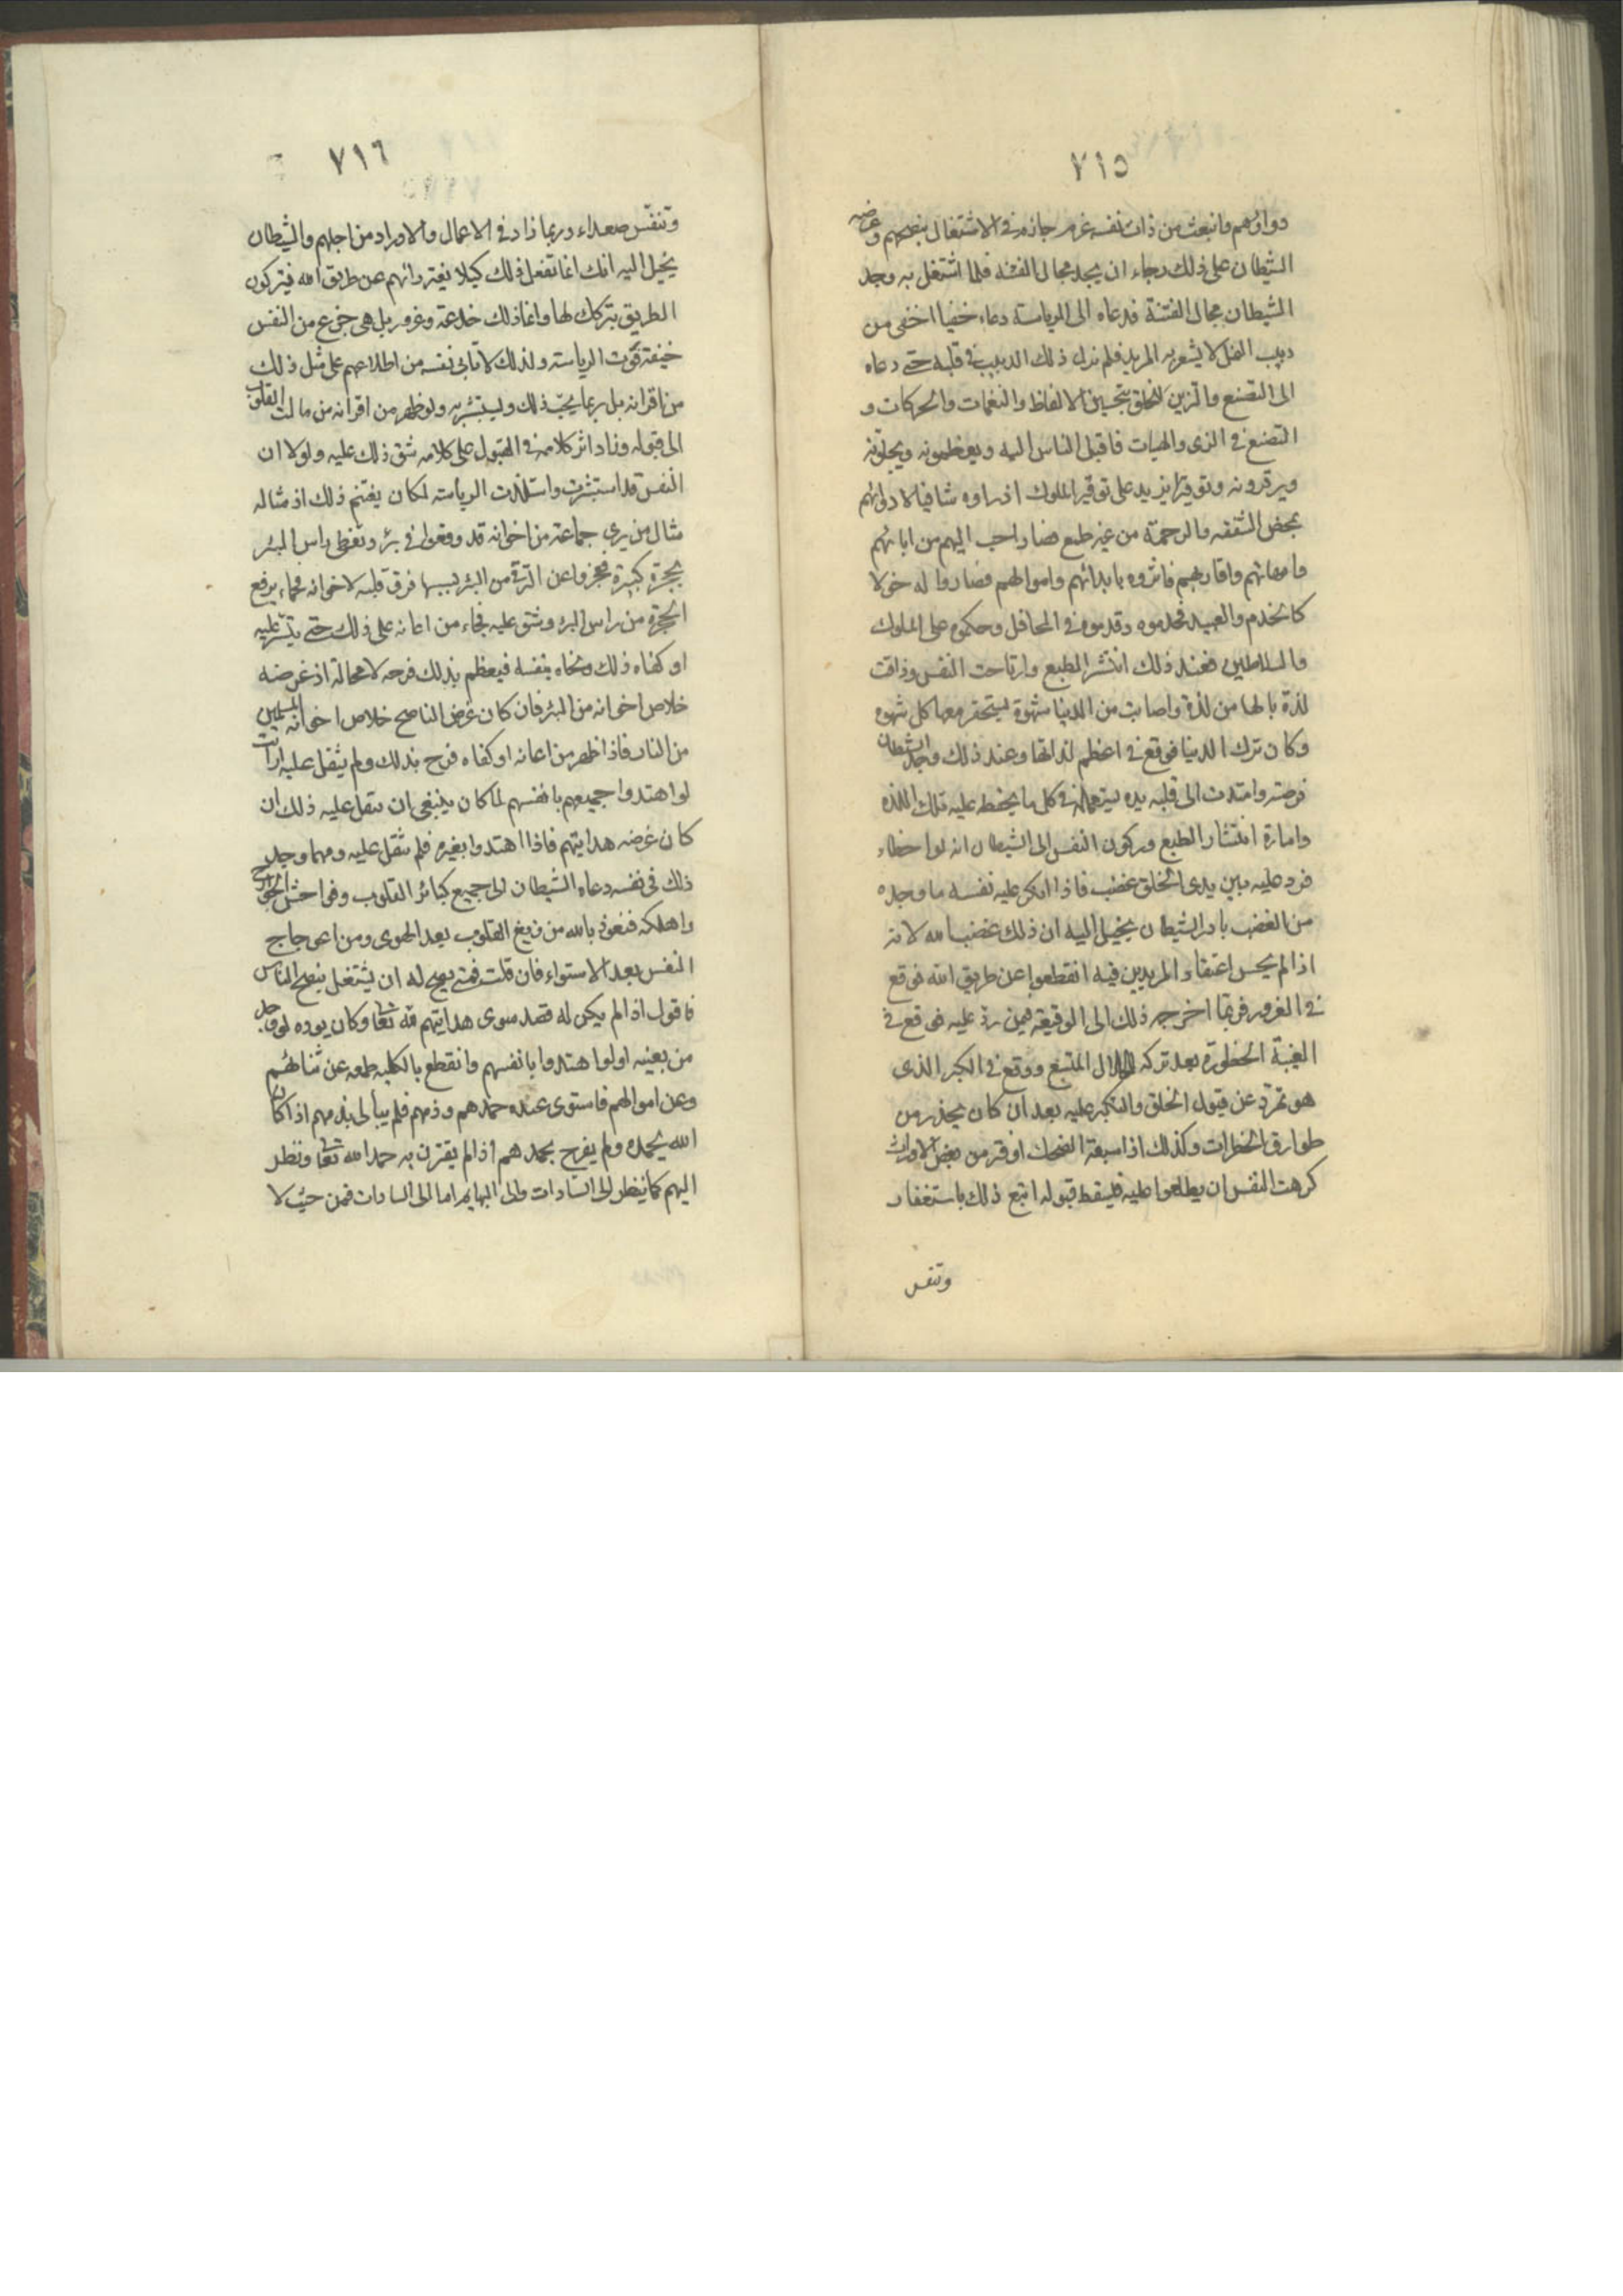 ٧١٥
دواؤهم وانبعث من ذات نفسه عزم جازم في الاشتغال بنصحهم وحرضه
الشيطان على ذلك رجاء ان يجد مجالا للفتنة فلما اشتغل به وجد
الشيطان مجال الفتنة فدعاه الى الرياسة دعاء خفيا اخفى من
دبيب النمل لا يشعر به المريد فلم يزل ذلك الدبيب في قلبه حتى دعاه
الى التصنع والتزين للخلق بتحسين الالفاظ والنغمات والحركات و
التصنع في الزى والهيات فاقبل الناس اليه ويعظمونه ويبجلونه
ويوقرونه وتوقيرا يزيد على توقير الملوك اذ راوه شافيا لادوائهم
بمحض الشفقه والرحمة من غير طمع فصار احب اليهم من ابائهم
وامهاتهم واقاربهم فاثروه بابدانهم واموالهم فصاروا له خولا
كالخدم والعبيد فخدموه وقدموه في المحافل وحكموه على الملوك
والسلاطين فعند ذلك انتشر الطبع وارتاحت النفس وذاقت
لذة يالها من لذة واصابت من الدنيا شهوة يستحقر معها كل شهوه
وكان ترك الدنيا فوقع في اعظم لذاتها وعند ذلك وجد الشيطان
فرصته وامتدت الى قلبه يده يستعمله في كل ما يحفظ عليه تلك اللذه
وامارة انتشار الطبع وركون النفس الى الشيطان انه لو اخطاء
فرد عليه بين يدى الخلق غضب فاذا انكر عليه نفسه ما وجده
من الغضب بادر الشيطان يخيل اليه ان ذلك غضب لله لانه
اذا لم يحسن اعتقاد المريدين فيه انقطعوا عن طريق الله فوقع
في الغرور فربما اخرجه ذلك الى الوقيعة فيمن رد عليه فوقع في
الغيبة المحظورة بعد تركه الحلال المتسع ووقع في الكبر الذى
هو تمرد عن قبول الخلق والتكبر عليه بعد ان كان يحذر من
طوارق الخطرات وكذلك اذا سبقه الضحك او فتر من بعض الاوراد
كرهت النفس ان يطلعوا عليه فيسقط قبوله اتبع ذلك باستغفار
وتنفس
٧١٦
وتنفس صعداء وربما زاد في الاعمال والاوراد من اجلهم والشيطان
يخيل اليه انك انما تفعل ذلك كيلا يفتر رائهم عن طريق الله فيتركون
الطريق بتركك لها وانما ذلك خدعة وغرور بل هى جزع من النفس
خيفة فوت الرياسة ولذلك لا تابى نفسه من اطلاعهم على مثل ذلك
من اقرانه بل ربما يحب ذلك ويستبشر به ولو ظهر من اقرانه من مالت القلوب
الى قبوله وزاد اثر كلامه في القبول على كلامه شق ذلك عليه ولولا ان
النفس قد استبشرت واستلذت الرياسة لكان يغتنم ذلك اذ مثاله
مثال من يرى جماعة من اخوانه قد وقعوا في بئر وتغطى راس البئر
بحجرة كبيرة فعجزوا عن الترقى من البئر بسببها فرق قلبه لاخوانه فجاء يرفع
الحجرة من راس البئر وشق عليه فجاء من اعانه على ذلك حتى يتيسر عليه
او كفاه ذلك ونحاه بنفسه فيعظم بذلك فرحه لا محالة اذ غرضه
خلاص اخوانه من البئر فان كان غرض الناصح خلاص اخوانه المسلمين
من النار فاذا ظهر من اعانه او كفاه فرح بذلك ولم يثقل عليه ارايت
لو اهتدوا جميعهم بانفسهم لما كان ينبغى ان يثقل عليه ذلك ان
كان غرضه هدايتهم فاذا اهتدوا بغيره فلم يثقل عليه ومهما وجد
ذلك في نفسه دعاه الشيطان الى جميع كبائر القلوب وفواحش الجوارح
واهلكه فنعوذ بالله من زيغ القلوب بعد الهدى ومن اعوجاج
النفس بعد الاستواء فان قلت فمتى يصح له ان يشتغل بنصح الناس
فاقول اذا لم يكن له قصد سوى هدايتهم لله تعالى وكان يوده لو وجد
من يعينه او لو اهتدوا بانفسهم وانقطع بالكلية طمعه عن ثنائهم
وعن اموالهم فاستوى عنده حمدهم وذمهم فلم يبالى بذمهم اذا كان
الله يحمده ولم يفرح بحمدهم اذا لم يقترن به حمد الله تعالى ونظر
اليهم كما ينظر الى السادات والى البهايم اما الى السادات فمن حيث لا